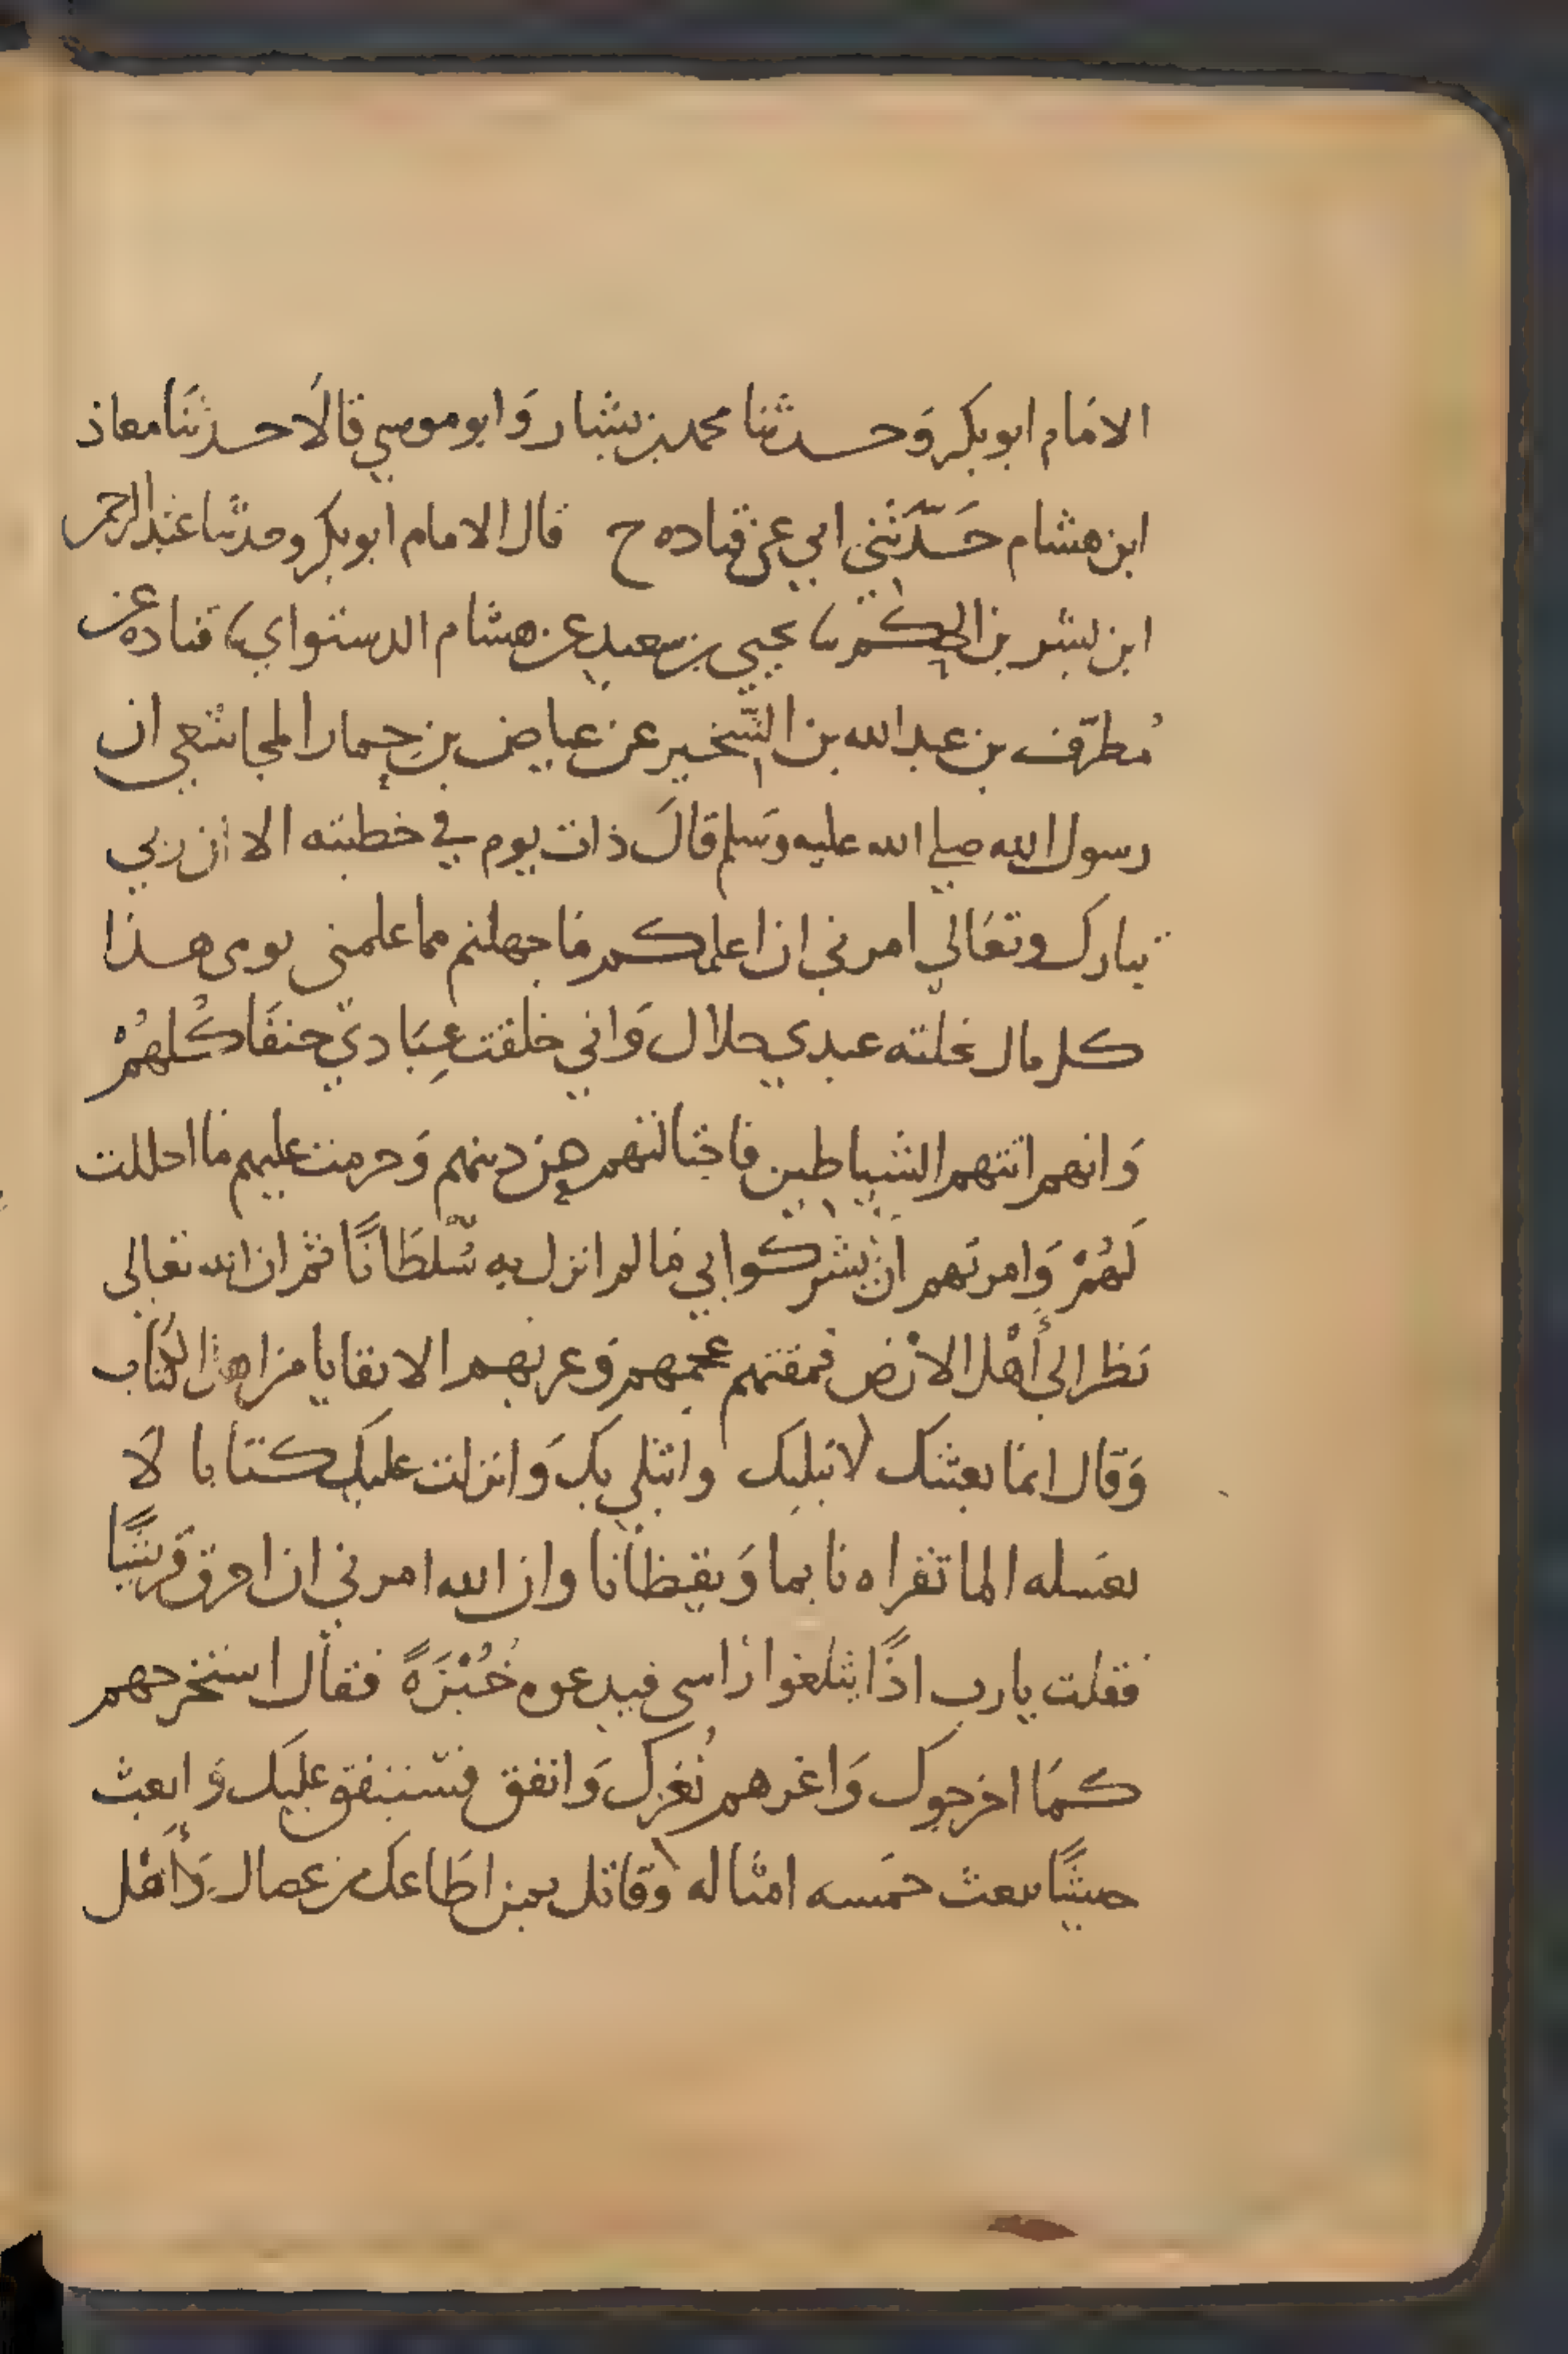 الامام ابو بكر وَحدثنا محمد بن بشار وَابو موسي قالَا حدثنا معاذ
ابن هشام حَدّثني ابي عن قتاده ح قال الامام ابو بكر وحدثنا عبد الرحمن
ابن بشر بن الحكم نا يحيي بن سعيد عن هشام الدستواي نا قتاده عن
مُطرّف بن عبد الله بن الشّخير عن عياض بن حِمار المجاشعي ان
رسول الله صلي الله عليه وَسلم قالَ ذات يوم في خطبته الا ان ربي
تبارك وتعَالي امرني ان اعلمكم ما جهلتم مما علمني يومى هذا
كل مال نحلته عبدي حلال وَاني خلقت عِبَادي حنفَا كُلهُمْ
وَانهم اتتهم الشياطين فاجتالتهم عن دينهم وَحرمت عليهم ما احللت
لَهُمْ وَامرتهم ان يشركوا بي ما لم انزل بهِ سُّلطَانًا ثم ان الله تعالى
نظر الى أهْل الارْض فمقتهم عجمهم وَعربهم الا بقايا من اهل الكتاب
وَقال انما بعثتك لابتليَك وابتلي بكَ وَانزلت عليكَ كتابا لَا
يغسله الما تقراه نايما وَيقظانا وان الله امرني ان احرق قريشًا
فقلت يا رب اذًا يثلغوا راسى فيدعوه خُبْزَةً فقال استخرجهم
كمَا اخرجوك وَاغزهم نُغزك وَانفق فسننفق عليَك وَابعث
جيشًا نبعث خمَسه امثاله وقاتل بمن اطَاعكَ من عصاك وَأهْل